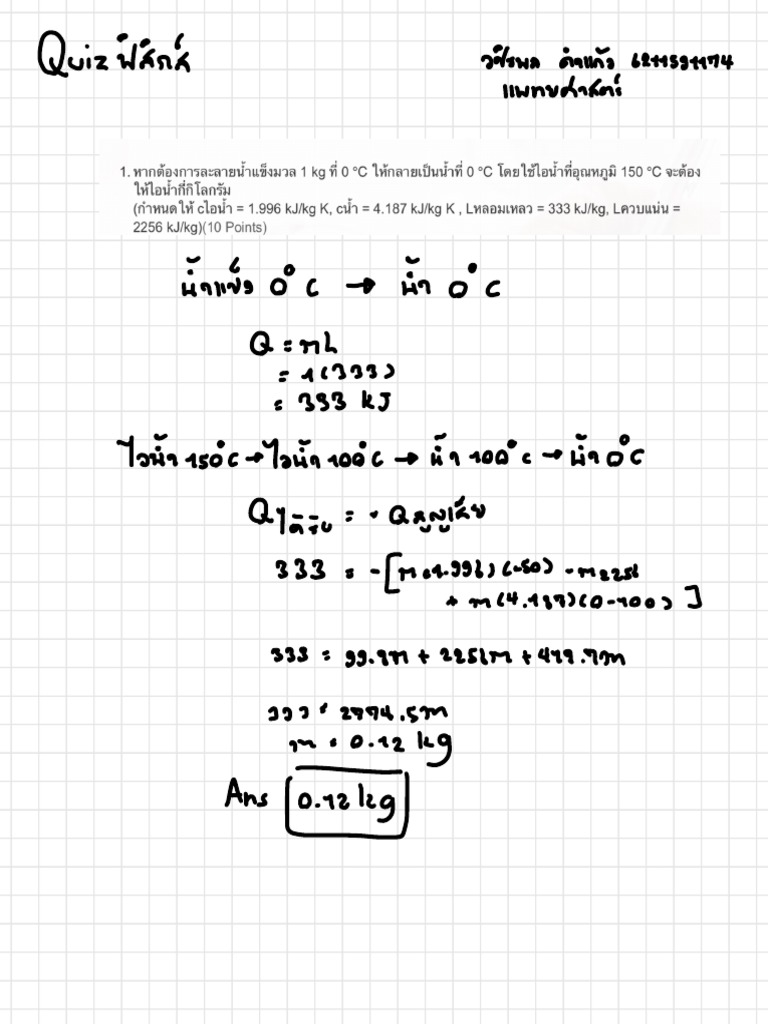 Quiz ฟิสิกส์
วชิรพล คำแก้ว 6211591174
แพทยศาสตร์
1. หากต้องการละลายน้ำแข็งมวล 1 kg ที่ 0 °C ให้กลายเป็นน้ำที่ 0 °C โดยใช้ไอน้ำที่อุณหภูมิ 150 °C จะต้อง
ให้ไอน้ำกี่กิโลกรัม
(กำหนดให้ cไอน้ำ = 1.996 kJ/kg K, cน้ำ = 4.187 kJ/kg K , Lหลอมเหลว = 333 kJ/kg, Lควบแน่น =
2256 kJ/kg)(10 Points)
น้ำแข็ง 0°C → น้ำ 0°C
Q = mL
= 1(333)
= 333 kJ
ไอน้ำ 150°C → ไอน้ำ 100°C → น้ำ 100°C → น้ำ 0°C
Qได้รับ = - Qสูญเสีย
333 = -[m(1.996)(-50) - m2256
+ m(4.187)(0-100)]
333 = 99.8m + 2256m + 418.7m
333 = 2774.5m
m = 0.12 kg
Ans 0.12 kg